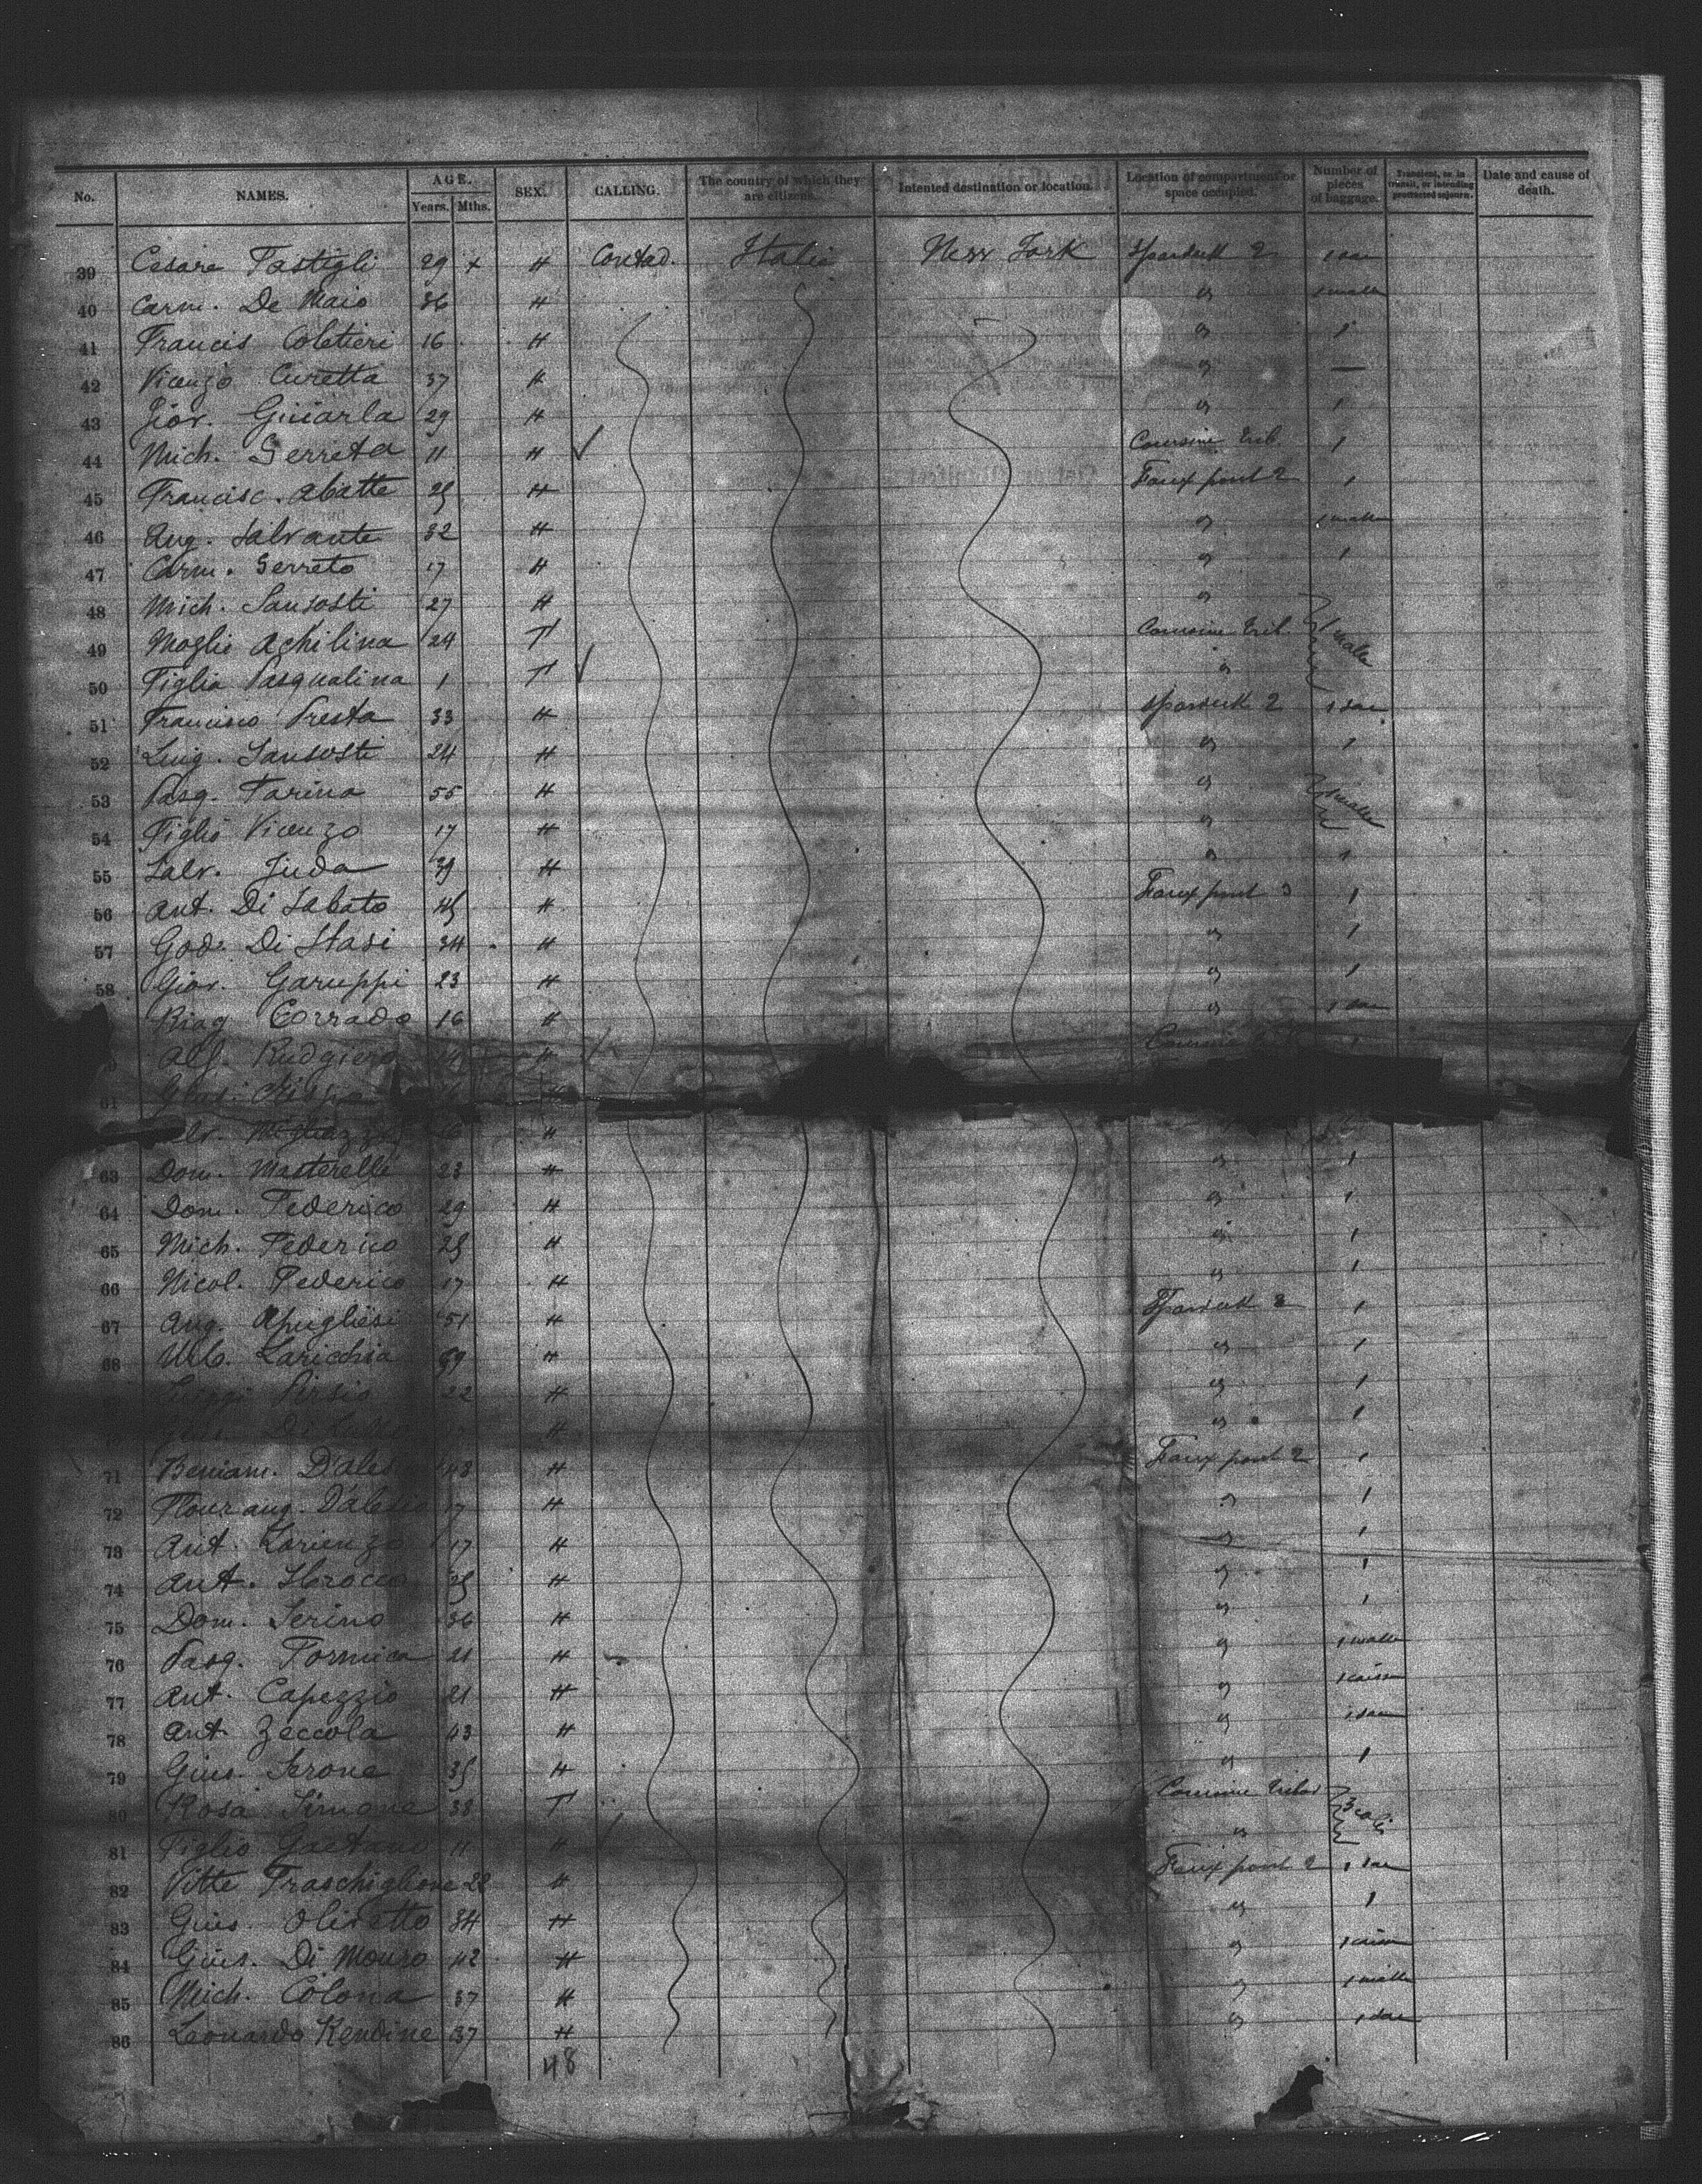 No. NAMES. AGE. Years. Mths. SEX. CALLING. The country of which they are citizens. Intented destination or location. Location of compartment or space occupied. Number of pieces of baggage. Transient, or in transit, or intending protracted sojourn. Date and cause of death.
39 Cesare Pastigli 29 H Contad. Italia New York Spardeck 2 1 sac
40 Carm. De Maio 36 H " 1 malle
41 Francis Coletieri 16 H " 1
42 Vicenzo Curetta 37 H " —
43 Giov. Guiarla 29 H " 1
44 Mich. Serreta 11 H Coursine trib. 1
45 Francisc. Abatte 25 H Faux pont 2 1
46 Ang. Salvante 32 H " 1 malle
47 Carm. Serreto 17 H " 1
48 Mich. Sansosti 27 H "
49 Moglie Achilina 24 F Coursine trib. 1 malle
50 Figlia Pasqualina 1 F "
51 Francisco Presta 33 H Spardeck 2 1 sac
52 Luig. Sansosti 24 H " 1
53 Pasq. Farina 55 H " 1 malle
54 Figlio Vicenzo 17 H "
55 Salv. Juda 39 H " 1
56 Ant. Di Sabato 45 H Faux pont 3 1
57 God. Di Stasi 34 H " 1
58 Giov. Garuppi 23 H " 1
Biag Corrado 16 H " 1 sac
Alf. Rudgiero H 1
61 Crispo H
H
63 Dom. Masterelli 23 H " 1
64 Dom. Federico 29 H " 1
65 Mich. Federico 25 H " 1
66 Nicol. Federico 17 H " 1
67 Ang. Apugliesi 51 H Spardeck 3 1
68 Urb. Laricchia 39 H " 1
Persio 22 H " 1
H " 1
71 Beniam. D'Ales 43 H Faux pont 2 1
72 D'alesio 17 H " 1
73 Ant. Lorienzo 17 H " 1
74 Ant. Sbrocco 35 H " 1
75 Dom. Serino 36 H " 1
76 Pasq. Formica 21 H " 1 malle
77 Ant. Capezzio 21 H " 1 caisse
78 Ant. Zeccola 43 H " 1 sac
79 Gius. Serone 35 H " 1
80 Rosa Simone 38 F Coursine 3 coli
81 Figlio Gaetano 11 H "
82 Vitte Fraschiglione 22 H Faux pont 2 1 sac
83 Gius. Olivetto 34 H " 1
84 Gius. Di Mouro 42 H " 1 caisse
85 Mich. Colona 37 H " 1 malle
86 Leonardo Rendine 37 H " 1 sac
48